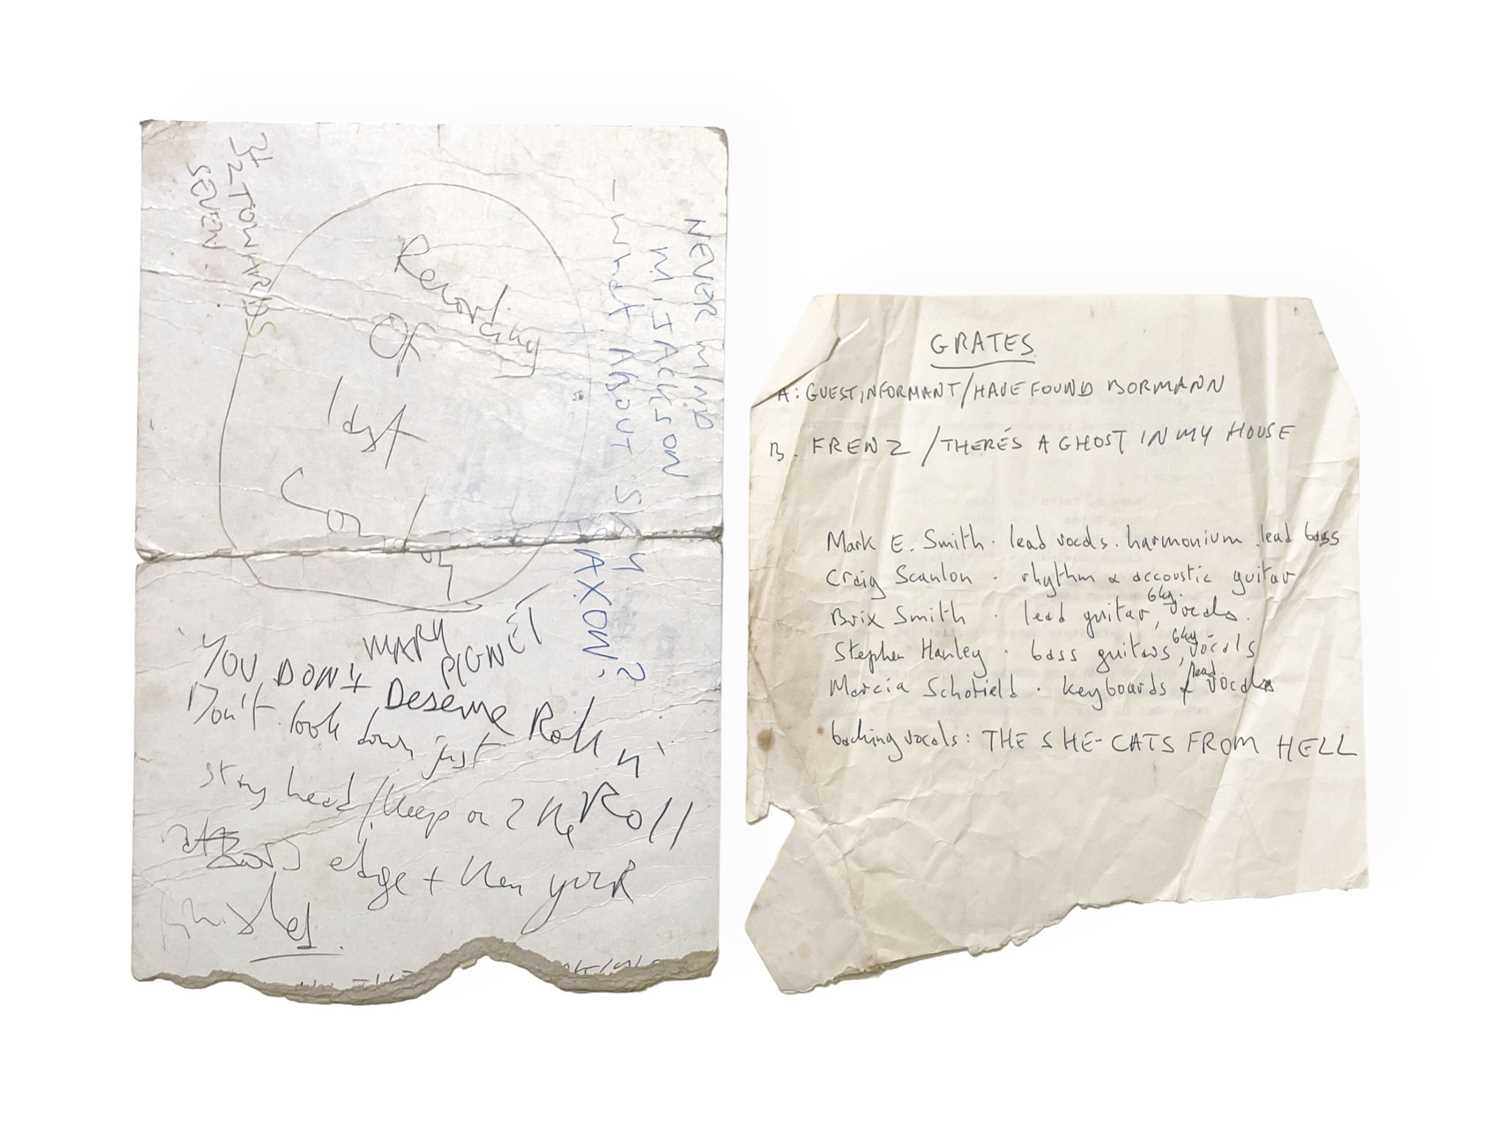 TOWARDS
SEVEN.
Recording
Of
last
NEVER MIND
M. JACKSON
- WHAT ABOUT
SAXON?
MARY
YOU DON'T
Deserve Rock n'
Roll
Don't look down just
stay head / keep on the
edge + then your
finished.
GRATES
A: GUEST INFORMANT / HAVE FOUND BORMANN
B. FRENZ / THERE'S A GHOST IN MY HOUSE
Mark E. Smith · lead vocals. harmonium. lead bass
Craig Scanlon · rhythm & accoustic guitar
Brix Smith · lead guitar, bkg. vocals.
Stephen Hanley · bass guitars, bkg vocals
Marcia Schofield · keyboards & lead vocals
backing vocals: THE SHE-CATS FROM HELL